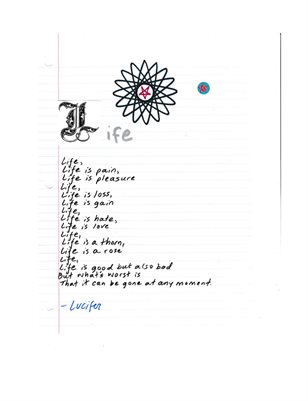 Life
Life,
Life is pain,
Life is pleasure
Life,
Life is loss,
Life is gain
Life,
Life is hate,
Life is love
Life,
Life is a thorn,
Life is a rose
Life,
Life is good but also bad
But what's worst is
That it can be gone at any moment.
- Lucifer